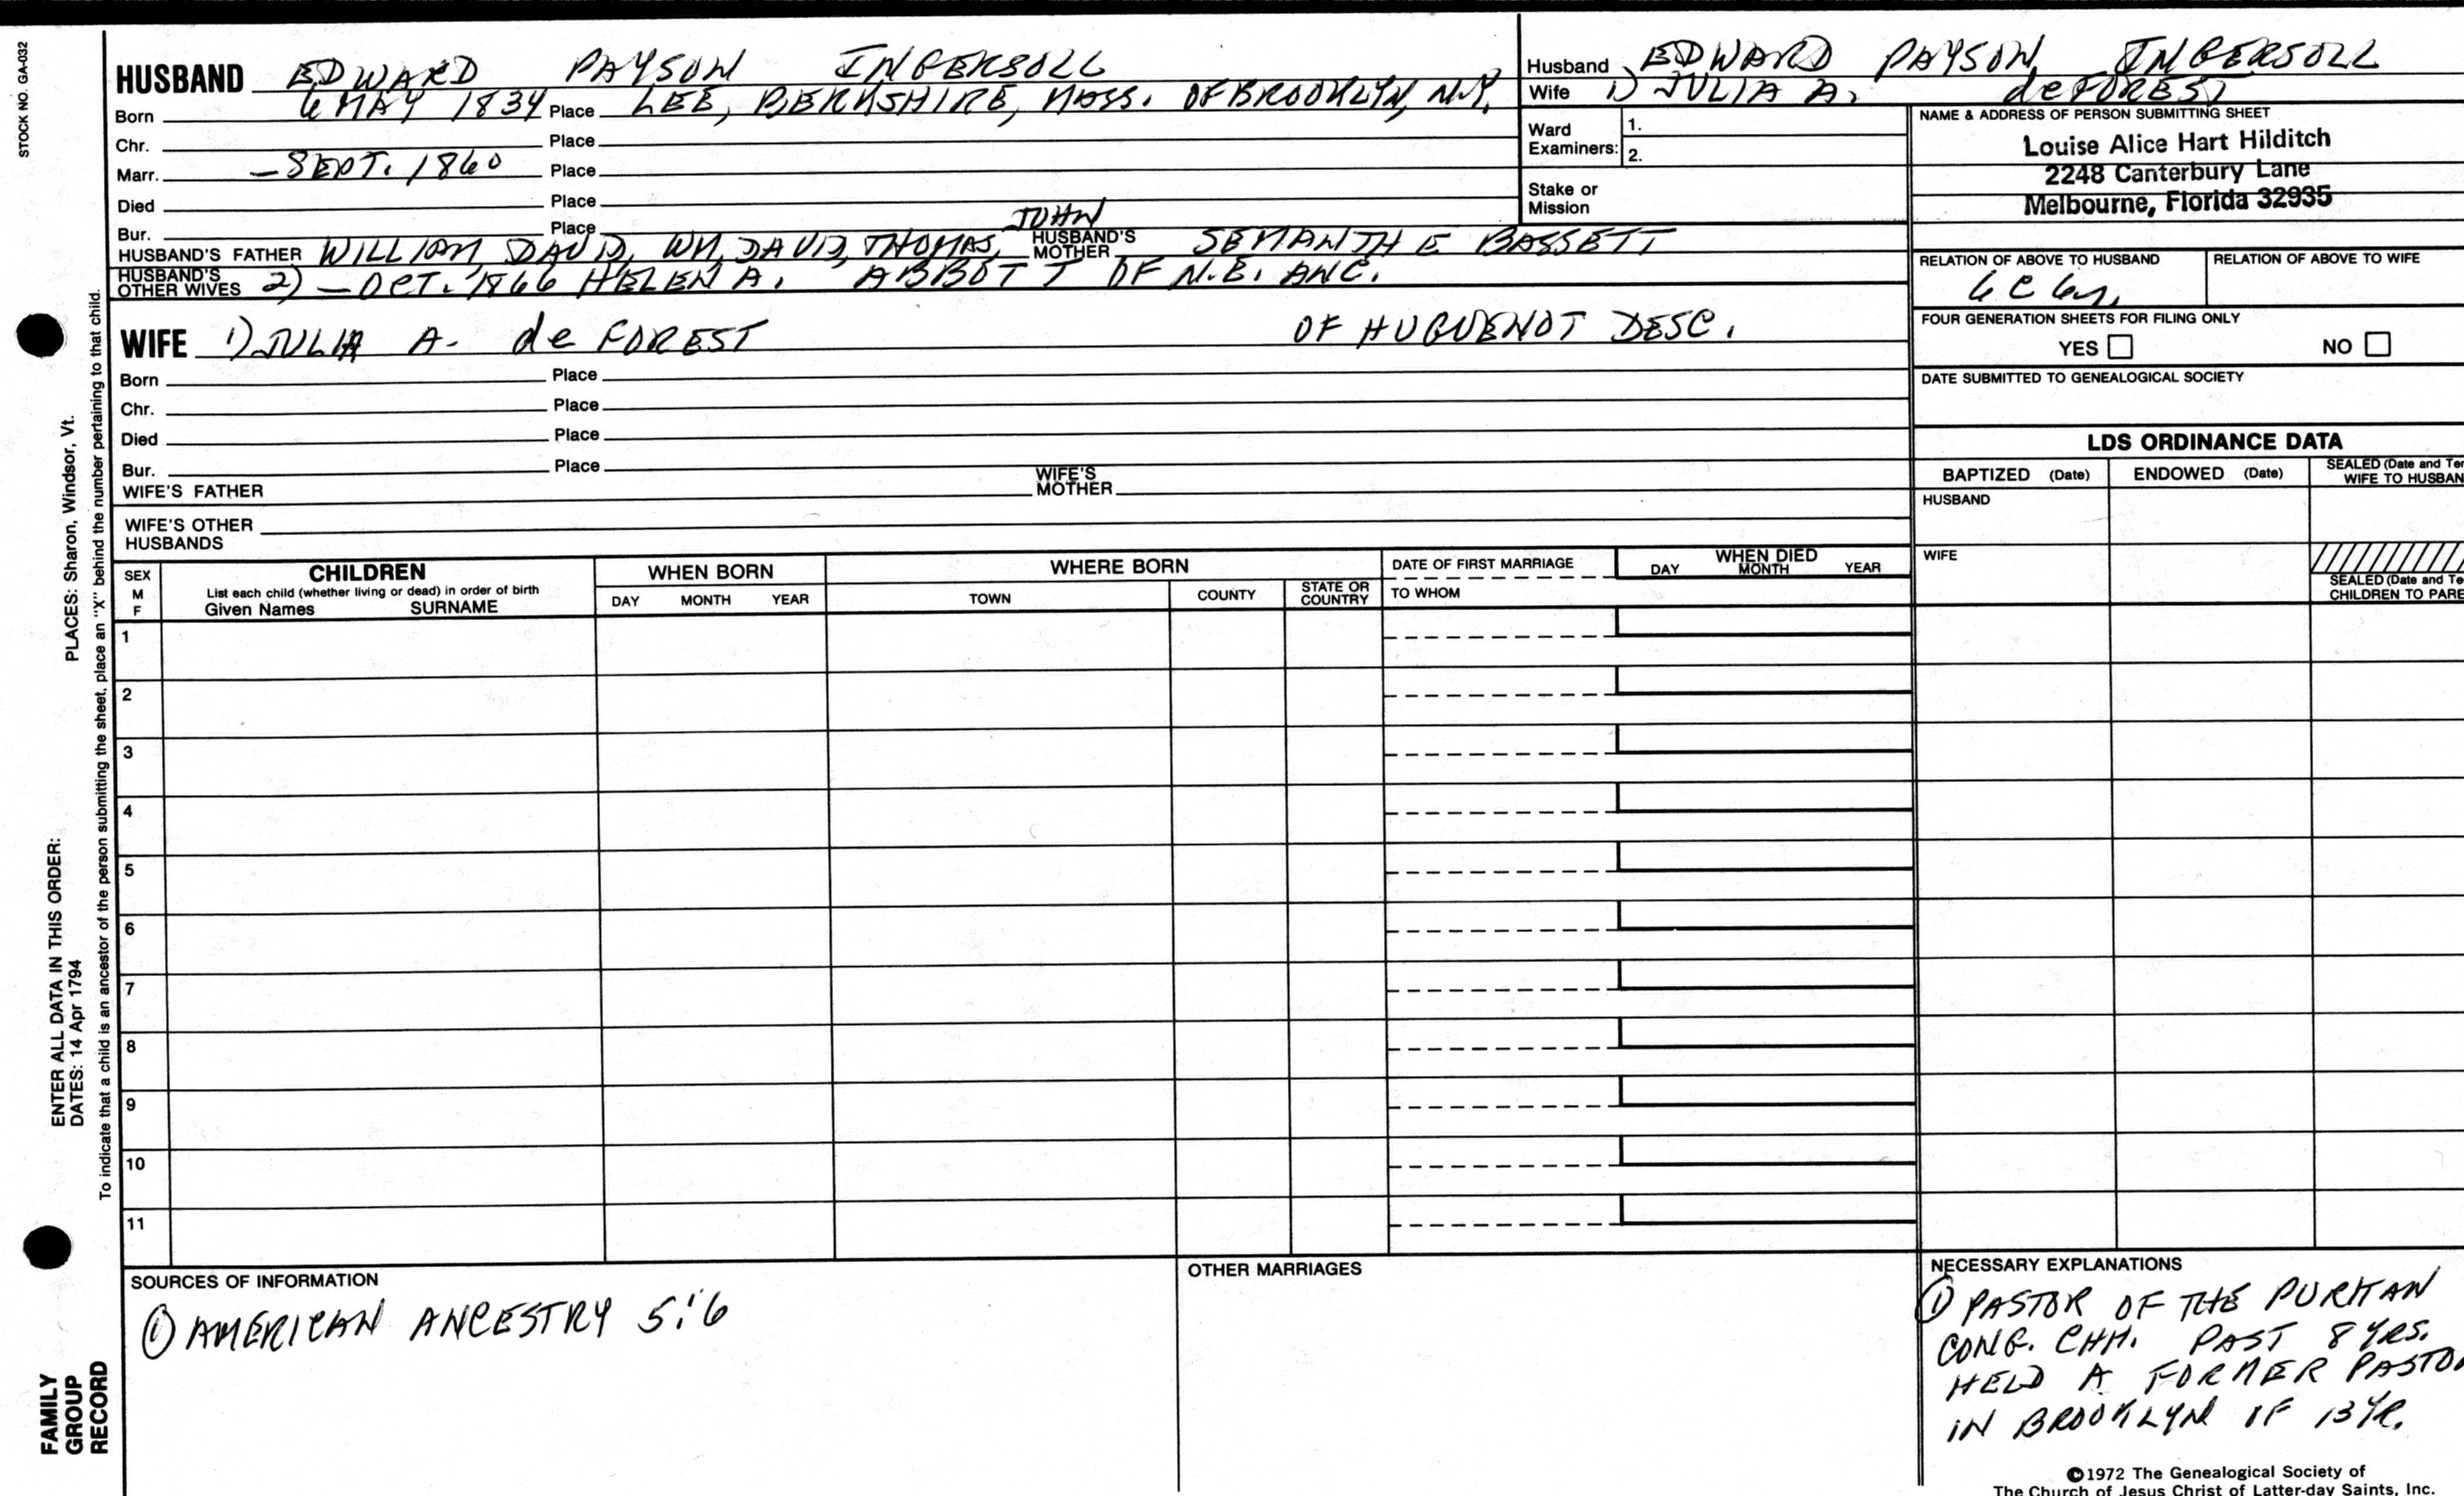 STOCK NO. GA-032
HUSBAND EDWARD PAYSON INGERSOLL
Born 6 MAY 1834 Place LEE, BERKSHIRE, MASS. OF BROOKLYN, N.Y.
Chr. Place
Marr. — SEPT. 1860 Place
Died Place
Bur. Place
JOHN
HUSBAND'S FATHER WILLIAM, DAVID, WM, DAVID, THOMAS, HUSBAND'S MOTHER SEMANTHE BASSETT
HUSBAND'S OTHER WIVES 2) — OCT. 1866 HELEN A. ABBOTT OF N.E. ANC.
WIFE 1) JULIA A. de FOREST OF HUGUENOT DESC.
Born Place
Chr. Place
Died Place
Bur. Place
WIFE'S FATHER WIFE'S MOTHER
WIFE'S OTHER HUSBANDS
Husband EDWARD PAYSON INGERSOLL
Wife 1) JULIA A. deFOREST
Ward Examiners: 1.
2.
Stake or Mission
NAME & ADDRESS OF PERSON SUBMITTING SHEET
Louise Alice Hart Hilditch
2248 Canterbury Lane
Melbourne, Florida 32935
RELATION OF ABOVE TO HUSBAND RELATION OF ABOVE TO WIFE
FOUR GENERATION SHEETS FOR FILING ONLY
YES NO
DATE SUBMITTED TO GENEALOGICAL SOCIETY
LDS ORDINANCE DATA
BAPTIZED (Date) ENDOWED (Date) SEALED (Date and Te
WIFE TO HUSBAN
HUSBAND
WIFE
SEALED (Date and Te
CHILDREN TO PARE
SEX M F
CHILDREN
List each child (whether living or dead) in order of birth
Given Names SURNAME
WHEN BORN
DAY MONTH YEAR
WHERE BORN
TOWN COUNTY STATE OR COUNTRY
DATE OF FIRST MARRIAGE
TO WHOM
WHEN DIED
DAY MONTH YEAR
1
2
3
4
5
6
7
8
9
10
11
SOURCES OF INFORMATION
① AMERICAN ANCESTRY 5:6
OTHER MARRIAGES
NECESSARY EXPLANATIONS
① PASTOR OF THE PURITAN
CONG. CHH. PAST 8 YRS.
HELD A FORMER PASTO
IN BROOKLYN OF 13 YR.
©1972 The Genealogical Society of
The Church of Jesus Christ of Latter-day Saints, Inc.
ENTER ALL DATA IN THIS ORDER:
DATES: 14 Apr 1794 PLACES: Sharon, Windsor, Vt.
To indicate that a child is an ancestor of the person submitting the sheet, place an "X" behind the number pertaining to that child.
FAMILY
GROUP
RECORD